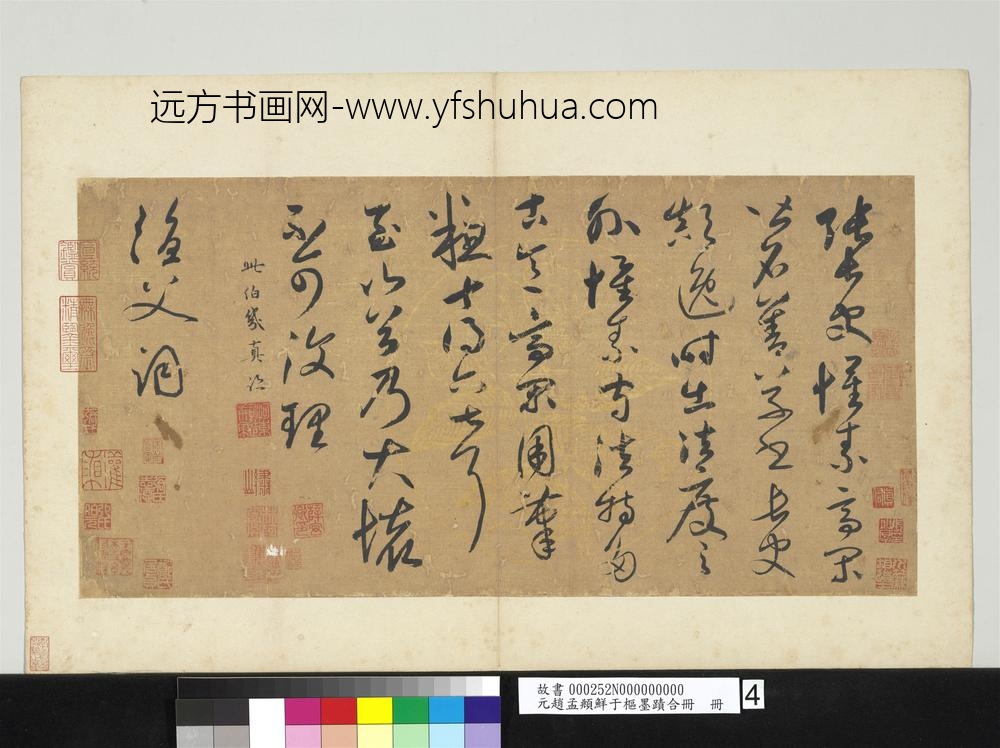 远方书画网-www.yfshuhua.com
張長史懷素高閑
皆名善草書長史
顛逸時出法度之
外懷素守法特多
古意高閑用筆
粗十得六七耳
至山谷乃大壞
不可復理
此伯幾真迹
父
故書 000252N000000000
元趙孟頫鮮于樞墨蹟合冊 冊
4